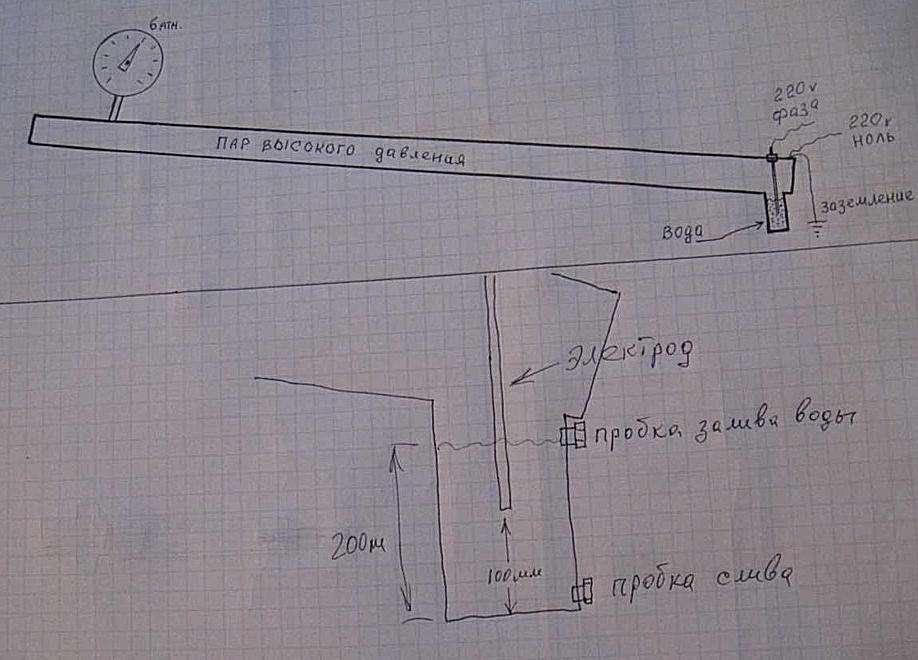 6 АТН.
220v
фаза
220v
ноль
ПАР ВЫСОКОГО давления
заземление
вода
электрод
пробка залива воды
200м
100мм
пробка слива